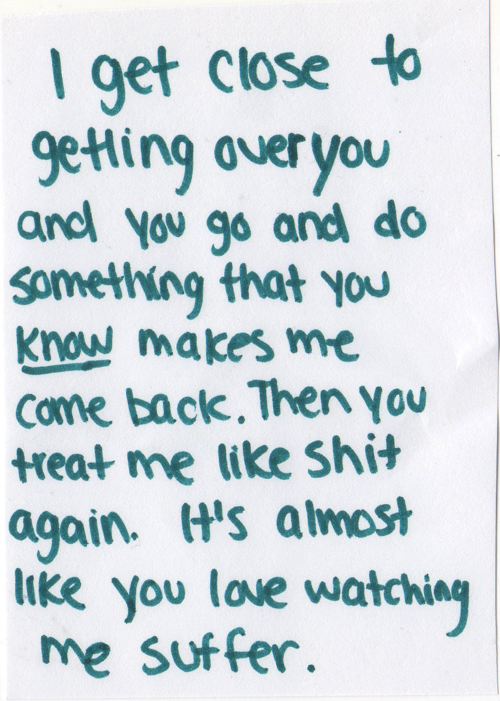 I get close to
getting over you
and you go and do
something that you
know makes me
come back. Then you
treat me like shit
again. It's almost
like you love watching
me suffer.